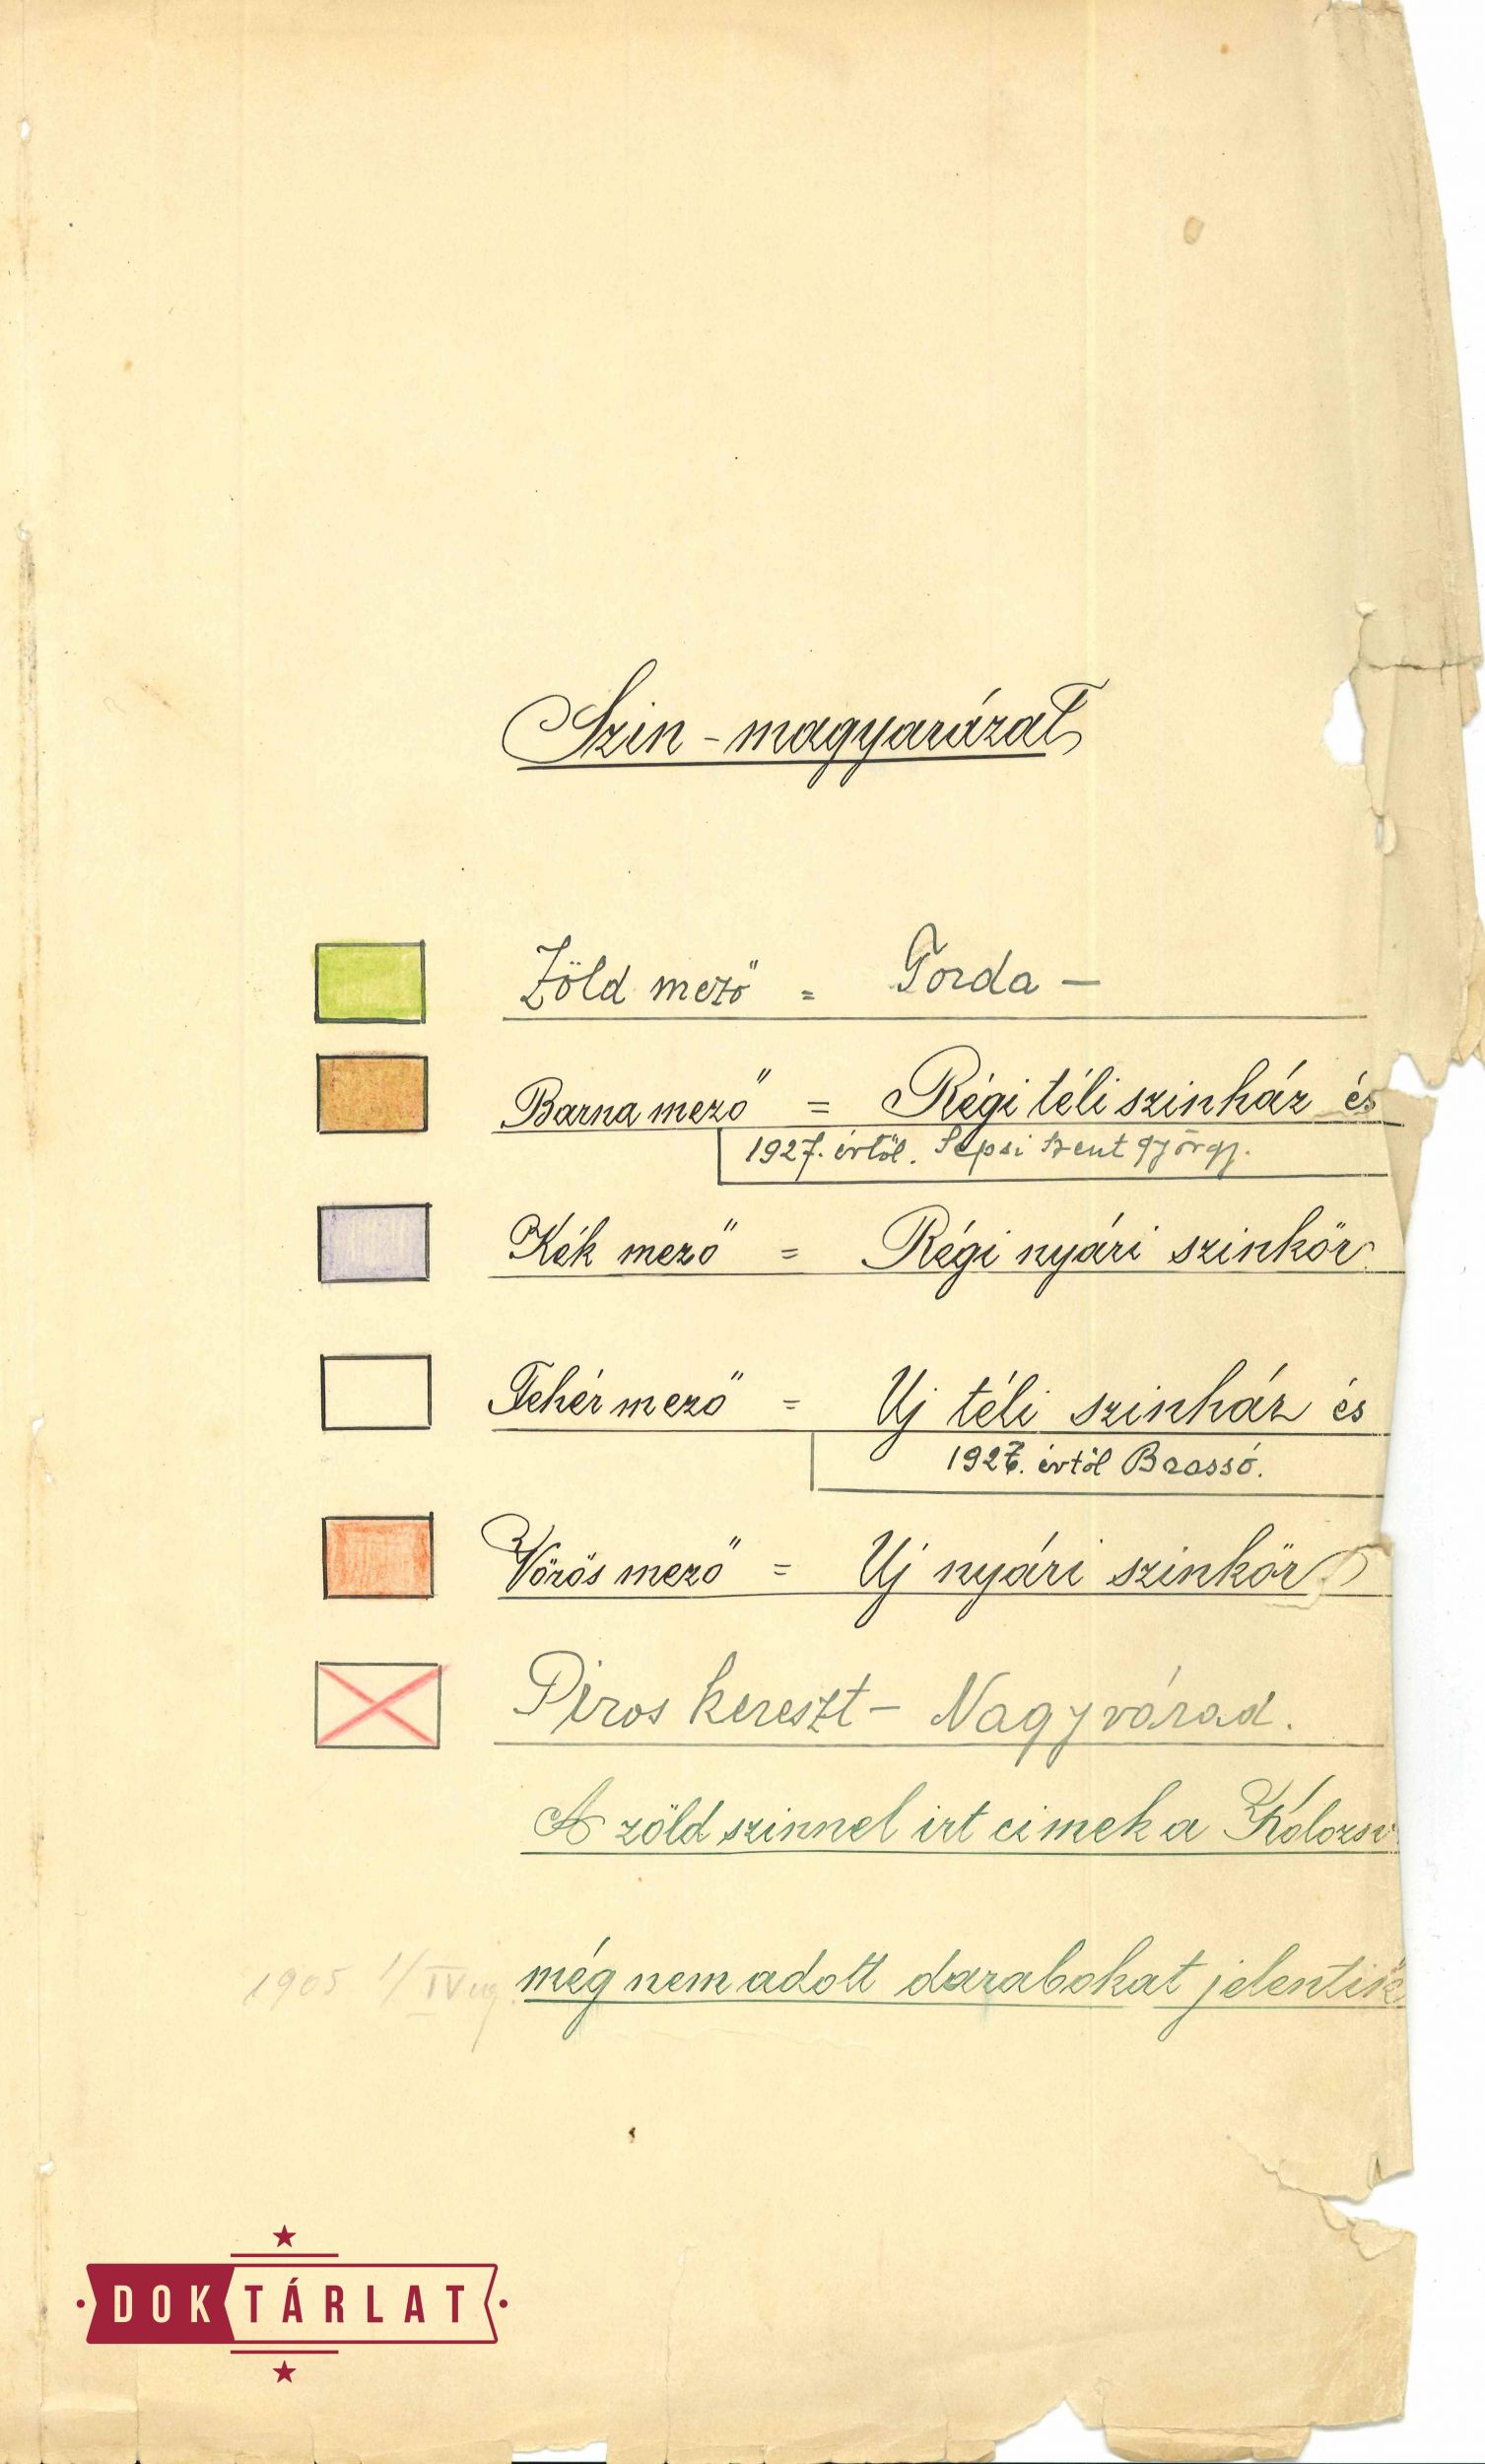 Szin-magyarázat
Zöld mező = Torda —
Barna mező = Régi téli szinház és
1927. évtől. Sepsi Szent György.
Kék mező = Régi nyári szinkör
Fehér mező = Uj téli szinház és
évtől Brassó.
Vörös mező = Uj nyári szinkör
Piros kereszt — Nagyvárad.
A zöld szinnel irt cimek a Kolozsv
1905 1/IV
még nem adott darabokat jelentik
DOKTÁRLAT